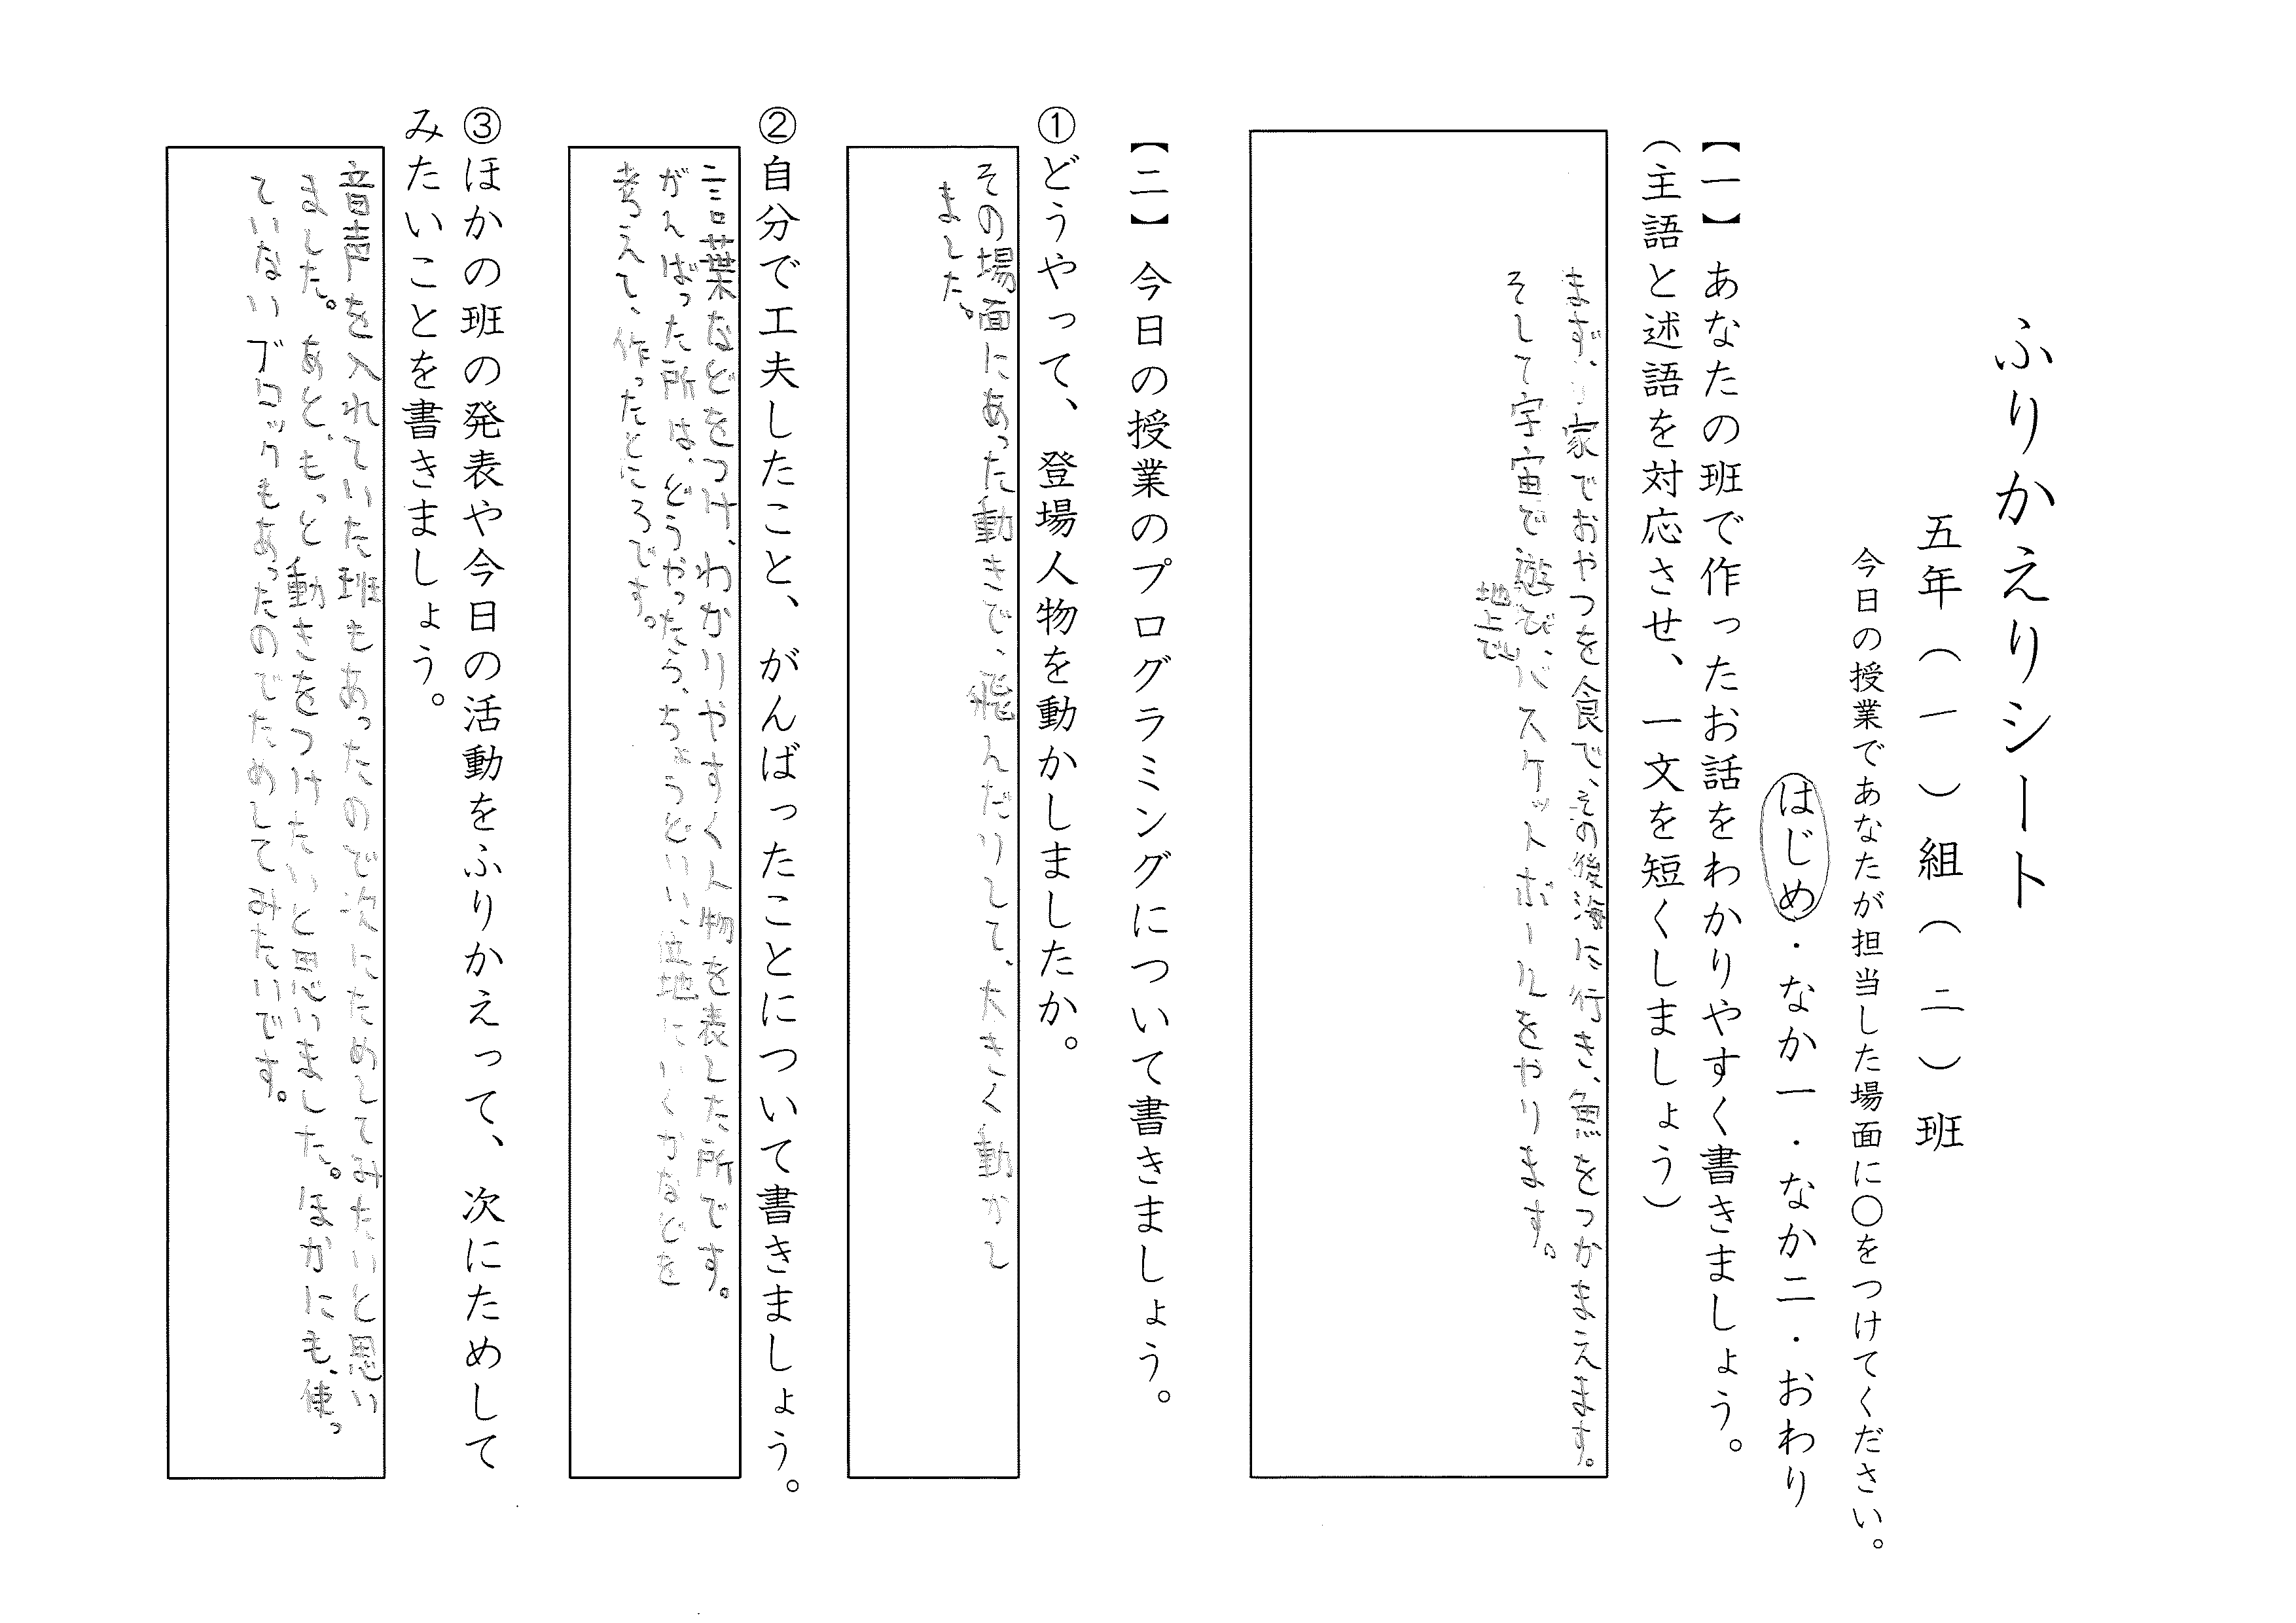 ふりかえりシート
五年（一）組（二）班
今日の授業であなたが担当した場面に〇をつけてください。
はじめ・なか一・なか二・おわり
【一】あなたの班で作ったお話をわかりやすく書きましょう。
（主語と述語を対応させ、一文を短くしましょう）
まず、家でおやつを食べて、その後海に行き、魚をつかまえます。
そして宇宙で遊び、バスケットボールをやります。
地上で
【二】今日の授業のプログラミングについて書きましょう。
①どうやって、登場人物を動かしましたか。
その場面にあった動きで、飛んだりして、大きく動かし
ました。
②自分で工夫したこと、がんばったことについて書きましょう。
言葉などをつけ、わかりやすく人物を表した所です。
がんばった所は、どうやったら、ちょうどいい、位地にいくかなどを
考えて、作ったところです。
③ほかの班の発表や今日の活動をふりかえって、次にためして
みたいことを書きましょう。
音声を入れていた班もあったので次にためしてみたいと思い
ました。あと、もっと動きをつけたいと思いました。ほかにも、使っ
ていないブロックもあったのでためしてみたいです。